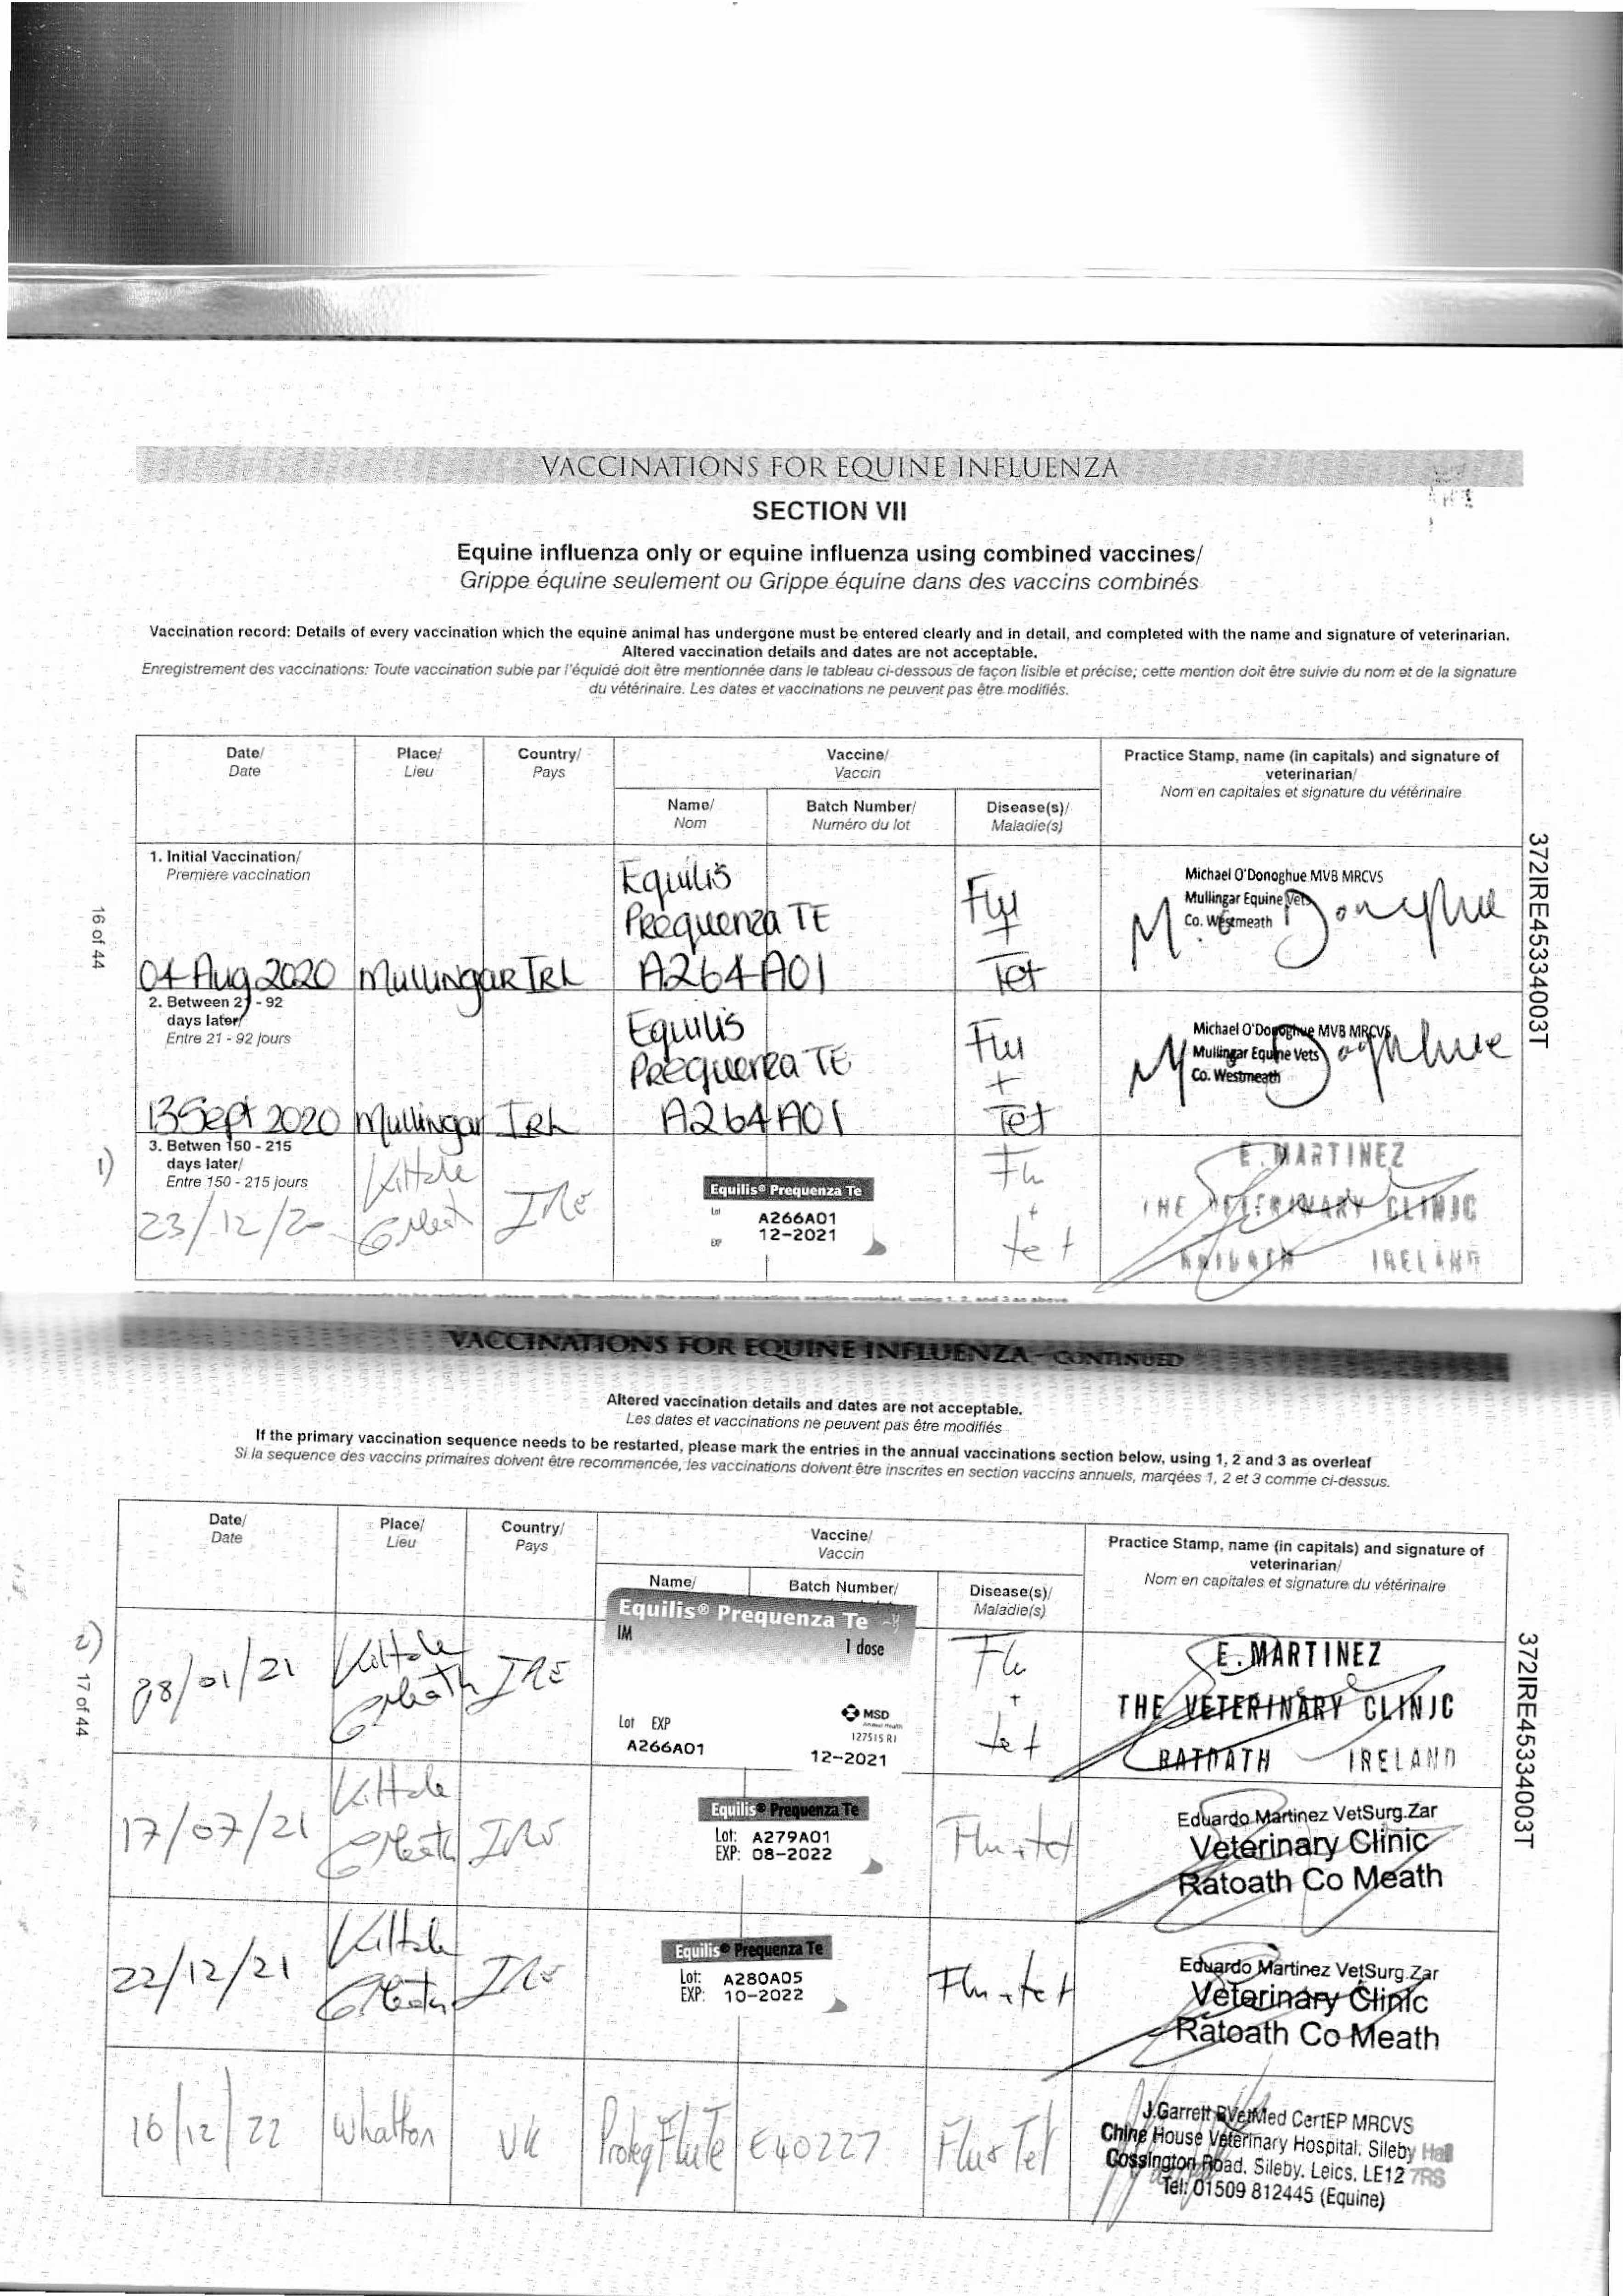 VACCINATIONS FOR EQUINE INFLUENZA
SECTION VII
Equine influenza only or equine influenza using combined vaccines/
Grippe équine seulement ou Grippe équine dans des vaccins combinés
Vaccination record: Details of every vaccination which the equine animal has undergone must be entered clearly and in detail, and completed with the name and signature of veterinarian.
Altered vaccination details and dates are not acceptable.
Enregistrement des vaccinations: Toute vaccination subie par l'équidé doit être mentionnée dans le tableau ci-dessous de façon lisible et précise; cette mention doit être suivie du nom et de la signature
du vétérinaire. Les dates et vaccinations ne peuvent pas être modifiés.
Date/ Place/ Country/ Vaccine/ Practice Stamp, name (in capitals) and signature of
Date Lieu Pays Vaccin veterinarian/
Nom en capitales et signature du vétérinaire
Name/ Batch Number/ Disease(s)/
Nom Numéro du lot Maladie(s)
1. Initial Vaccination/
Premiere vaccination
Equilis
Prequenza TE
Flu
+
Michael O'Donoghue MVB MRCVS
Mullingar Equine Vets
Co. Westmeath
M. O'Donoghue
04 Aug 2020 Mullingar IRL A264A01 Tet
2. Between 21 - 92
days later/
Entre 21 - 92 jours
Equilis
Prequenza TE
Flu
+
Michael O'Donoghue MVB MRCVS
Mullingar Equine Vets
Co. Westmeath
13 Sept 2020 Mullingar IRL A264A01 Tet
1)
3. Betwen 150 - 215
days later/
Entre 150 - 215 jours
23/12/20
Kiltale
Co Meath
IRE
Equilis® Prequenza Te
Lot A266A01
EXP 12-2021
Flu
+
tet
E. MARTINEZ
THE VETERINARY CLINIC
RATOATH IRELAND
16 of 44
372IRE45334003T
VACCINATIONS FOR EQUINE INFLUENZA - CONTINUED
Altered vaccination details and dates are not acceptable.
Les dates et vaccinations ne peuvent pas être modifiés
If the primary vaccination sequence needs to be restarted, please mark the entries in the annual vaccinations section below, using 1, 2 and 3 as overleaf
Si la sequence des vaccins primaires doivent être recommencée, les vaccinations doivent être inscrites en section vaccins annuels, marqées 1, 2 et 3 comme ci-dessus.
Date/ Place/ Country/ Vaccine/ Practice Stamp, name (in capitals) and signature of
Date Lieu Pays Vaccin veterinarian/
Nom en capitales et signature du vétérinaire
Name/ Batch Number/ Disease(s)/
Maladie(s)
2)
Kiltale
Co Meath
IRE
Equilis® Prequenza Te
IM
1 dose
MSD
Lot EXP
127515 R1
A266A01
12-2021
Flu
+
tet
E. MARTINEZ
THE VETERINARY CLINIC
RATOATH IRELAND
17/07/21
Kiltale
Co Meath
IRE
Equilis® Prequenza Te
Lot: A279A01
EXP: 08-2022
Flu+tet
Eduardo Martinez VetSurg.Zar
Veterinary Clinic
Ratoath Co Meath
22/12/21
Kiltale
Co Meath
IRE
Equilis® Prequenza Te
Lot: A280A05
EXP: 10-2022
Flu+tet
Eduardo Martinez VetSurg.Zar
Veterinary Clinic
Ratoath Co Meath
16/12/22 Whatton UK ProteqFluTe E40227 Flu+Tet
J.Garrett BVetMed CertEP MRCVS
Chine House Veterinary Hospital, Sileby Hall
Cossington Road, Sileby, Leics, LE12 7RS
Tel: 01509 812445 (Equine)
17 of 44
372IRE45334003T